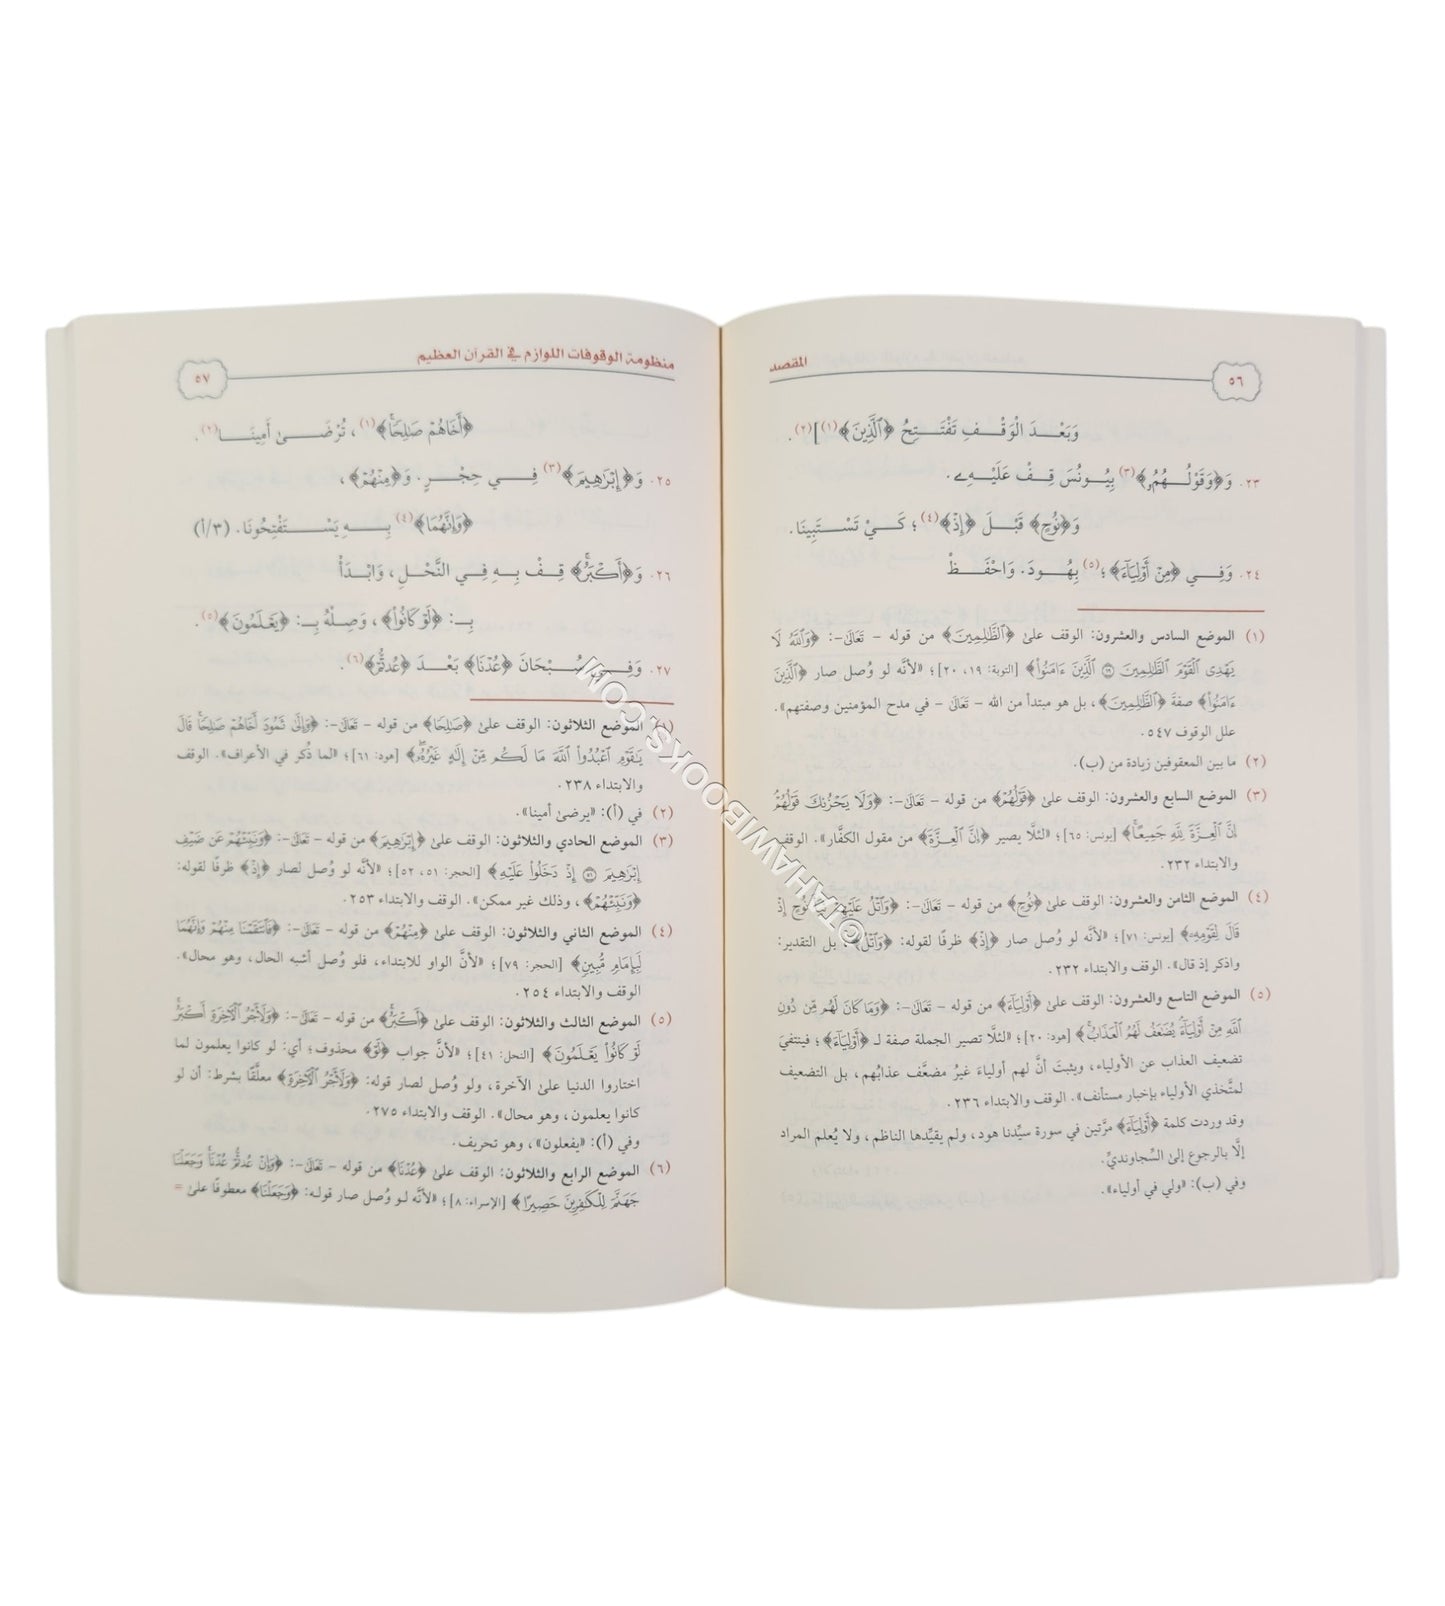 المقصد
٥٦
وَبَعْدَ الْوَقْفِ تَفْتَتِحُ ﴿ٱلَّذِينَ﴾(١)](٢).
٢٣. وَ﴿وَقَوْلُهُمُۥ﴾(٣) بِيُونُسَ قِفْ عَلَيْهِۦ.
وَ﴿نُوحٍ﴾ قَبْلَ ﴿إِذْ﴾(٤)؛ كَيْ تَسْتَبِينَا.
٢٤. وَفِي ﴿مِنْ أَوْلِيَآءَ﴾؛(٥) بِهُودَ. وَاحْفَظْ
(١) الموضع السادس والعشرون: الوقف علىٰ ﴿ٱلظَّٰلِمِينَ﴾ من قوله - تَعَالَىٰ-: ﴿وَٱللَّهُ لَا
يَهْدِى ٱلْقَوْمَ ٱلظَّٰلِمِينَ ١٩ ٱلَّذِينَ ءَامَنُوا۟﴾ [التوبة: ١٩، ٢٠]؛ «لأنَّه لو وُصل صار ﴿ٱلَّذِينَ
ءَامَنُوا۟﴾ صفةَ ﴿ٱلظَّٰلِمِينَ﴾، بل هو مبتدأ من الله - تَعَالَىٰ - في مدح المؤمنين وصفتهم».
علل الوقوف ٥٤٧.
(٢) ما بين المعقوفين زيادة من (ب).
(٣) الموضع السابع والعشرون: الوقف علىٰ ﴿قَوْلُهُمْ﴾ من قوله - تَعَالَىٰ-: ﴿وَلَا يَحْزُنكَ قَوْلُهُمْ
إِنَّ ٱلْعِزَّةَ لِلَّهِ جَمِيعًا﴾ [يونس: ٦٥]؛ «لئلَّا يصير ﴿إِنَّ ٱلْعِزَّةَ﴾ من مقول الكفَّار». الوقف
والابتداء ٢٣٢.
(٤) الموضع الثامن والعشرون: الوقف علىٰ ﴿نُوحٍ﴾ من قوله - تَعَالَىٰ-: ﴿وَٱتْلُ عَلَيْهِمْ نَبَأَ نُوحٍ إِذْ
قَالَ لِقَوْمِهِۦ﴾ [يونس: ٧١]؛ «لأنَّه لو وُصل صار ﴿إِذْ﴾ ظرفًا لقوله: ﴿وَٱتْلُ﴾، بل التقدير:
واذكر إذ قال». الوقف والابتداء ٢٣٢.
(٥) الموضع التاسع والعشرون: الوقف علىٰ ﴿أَوْلِيَآءَ﴾ من قوله - تَعَالَىٰ-: ﴿وَمَا كَانَ لَهُم مِّن دُونِ
ٱللَّهِ مِنْ أَوْلِيَآءَ يُضَٰعَفُ لَهُمُ ٱلْعَذَابُ﴾ [هود: ٢٠]؛ «لئلَّا تصير الجملة صفة لـ ﴿أَوْلِيَآءَ﴾؛ فينتفيَ
تضعيف العذاب عن الأولياء، ويثبتَ أنَّ لهم أولياءَ غيرُ مضعَّف عذابُهم، بل التضعيف
لمتَّخذي الأولياء بإخبار مستأنف». الوقف والابتداء ٢٣٦.
وقد وردت كلمة ﴿أَوْلِيَآءَ﴾ مرَّتين في سورة سيِّدنا هود، ولم يقيِّدها الناظم، ولا يُعلم المراد
إلَّا بالرجوع إلىٰ السِّجاونديِّ.
وفي (ب): «ولي في أولياء».
منظومة الوقوفات اللوازم في القرآن العظيم
٥٧
﴿أَخَاهُمْ صَٰلِحًا﴾(١)، تُرْضَىٰ أَمِينَا(٢).
٢٥. وَ﴿إِبْرَٰهِيمَ﴾(٣) فِي حِجْرٍ. وَ﴿مِنْهُمْ﴾،
﴿وَإِنَّهُمَا﴾(٤) بِهِ يَسْتَفْتِحُونَا. (٣/أ)
٢٦. وَ﴿أَكْبَرُ﴾ قِفْ بِهِ فِي النَّحْلِ، وَابْدَأْ
بِـ: ﴿لَوْ كَانُوا۟﴾، وَصِلْهُ بِـ: ﴿يَعْلَمُونَ﴾(٥).
٢٧. وَفِي سُبْحَانَ ﴿عُدْنَا﴾ بَعْدَ ﴿عُدتُّمْ﴾(٦).
(١) الموضع الثلاثون: الوقف علىٰ ﴿صَٰلِحًا﴾ من قوله - تَعَالَىٰ-: ﴿وَإِلَىٰ ثَمُودَ أَخَاهُمْ صَٰلِحًا قَالَ
يَٰقَوْمِ ٱعْبُدُوا۟ ٱللَّهَ مَا لَكُم مِّنْ إِلَٰهٍ غَيْرُهُۥ﴾ [هود: ٦١]؛ «لما ذُكر في الأعراف». الوقف
والابتداء ٢٣٨.
(٢) في (أ): «يرضىٰ أمينا».
(٣) الموضع الحادي والثلاثون: الوقف علىٰ ﴿إِبْرَٰهِيمَ﴾ من قوله - تَعَالَىٰ-: ﴿وَنَبِّئْهُمْ عَن ضَيْفِ
إِبْرَٰهِيمَ ٥١ إِذْ دَخَلُوا۟ عَلَيْهِ﴾ [الحجر: ٥١، ٥٢]؛ «لأنَّه لو وُصل لصار ﴿إِذْ﴾ ظرفًا لقوله:
﴿وَنَبِّئْهُمْ﴾، وذلك غير ممكن». الوقف والابتداء ٢٥٣.
(٤) الموضع الثاني والثلاثون: الوقف علىٰ ﴿مِنْهُمْ﴾ من قوله - تَعَالَىٰ-: ﴿فَٱنتَقَمْنَا مِنْهُمْ وَإِنَّهُمَا
لَبِإِمَامٍ مُّبِينٍ﴾ [الحجر: ٧٩]؛ «لأنَّ الواو للابتداء، فلو وُصل أشبه الحال، وهو محال».
الوقف والابتداء ٢٥٤.
(٥) الموضع الثالث والثلاثون: الوقف علىٰ ﴿أَكْبَرُ﴾ من قوله - تَعَالَىٰ-: ﴿وَلَأَجْرُ ٱلْءَاخِرَةِ أَكْبَرُ
لَوْ كَانُوا۟ يَعْلَمُونَ﴾ [النحل: ٤١]؛ «لأنَّ جواب ﴿لَوْ﴾ محذوف؛ أي: لو كانوا يعلمون لما
اختاروا الدنيا علىٰ الآخرة، ولو وُصل لصار قوله: ﴿وَلَأَجْرُ ٱلْءَاخِرَةِ﴾ معلَّقًا بشرط: أن لو
كانوا يعلمون، وهو محال». الوقف والابتداء ٢٧٥.
وفي (أ): «يفعلون»، وهو تحريف.
(٦) الموضع الرابع والثلاثون: الوقف علىٰ ﴿عُدْنَا﴾ من قوله - تَعَالَىٰ-: ﴿وَإِنْ عُدتُّمْ عُدْنَا وَجَعَلْنَا
جَهَنَّمَ لِلْكَٰفِرِينَ حَصِيرًا﴾ [الإسراء: ٨]؛ «لأنَّه لو وُصل صار قوله: ﴿وَجَعَلْنَا﴾ معطوفًا علىٰ =
©TAHAWIBOOKS.COM